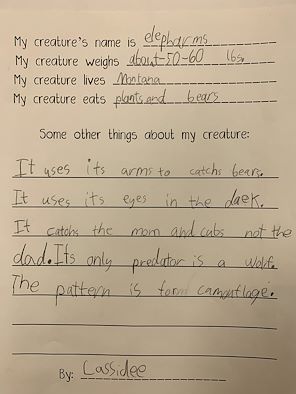 My creature's name is elepharms
My creature weighs about-50-60 lbs.
My creature lives Montana
My creature eats plants and bears
Some other things about my creature:
It uses its arms to catchs bears.
It uses its eyes in the dark.
It catchs the mom and cubs not the
dad. Its only predator is a wolf.
The pattern is form camouflage.
By: Cassidee